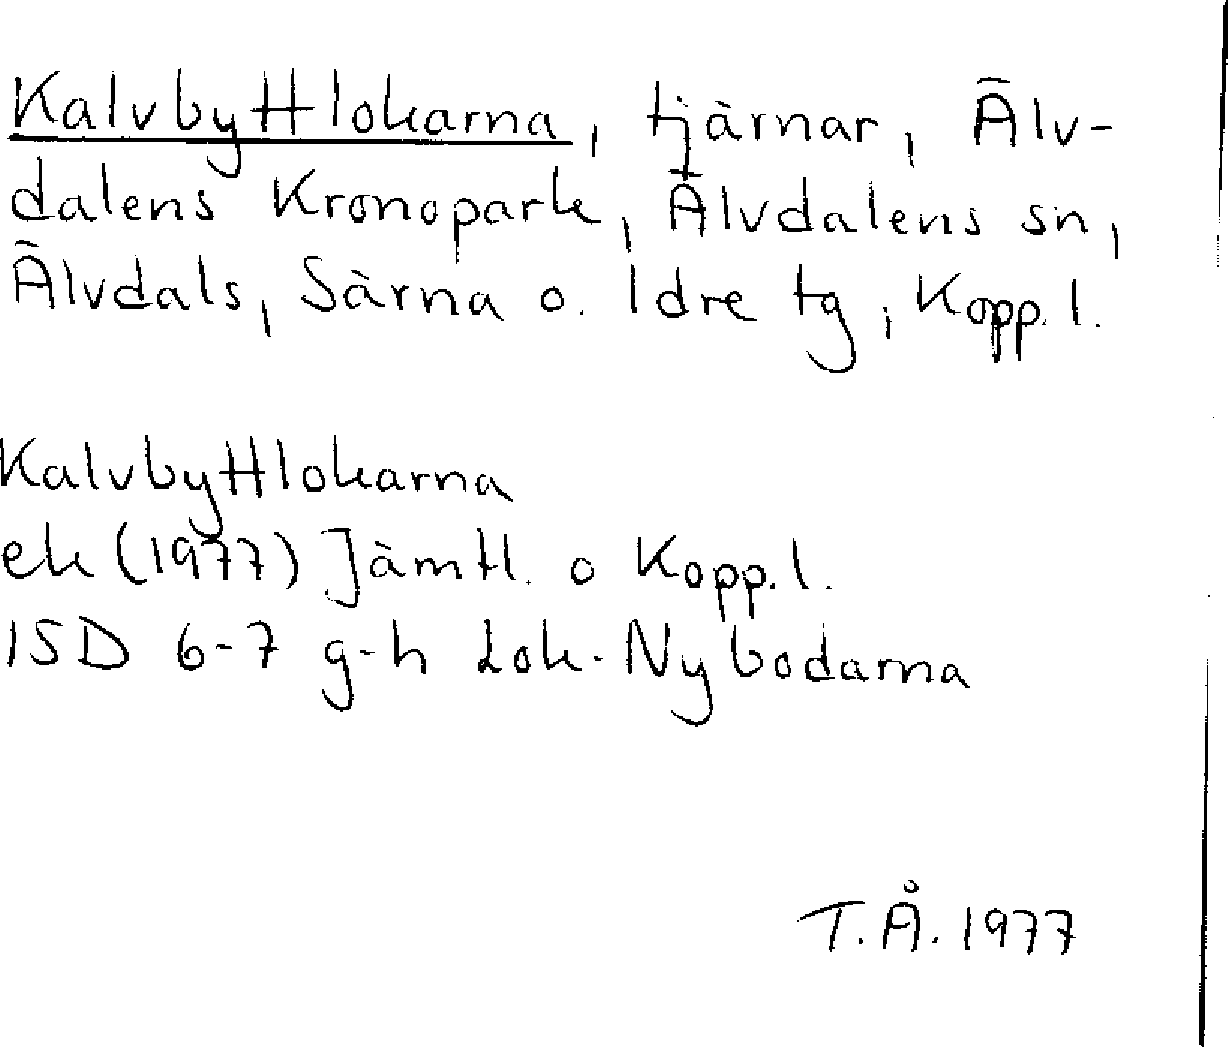 Kalvbyttlokarna, tjärnar, Älv-
dalens Kronopark, Älvdalens sn,
Älvdals, Särna o. Idre tg, Kopp. l.
Kalvbyttlokarna
ek (1977) Jämtl. o Kopp. l.
15D 6-7 g-h Lok-Nybodarna
T.Å. 1977